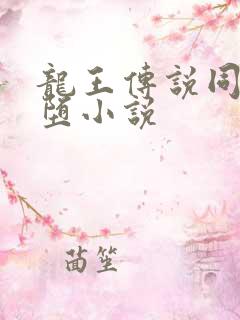 龍王傳說同
墮小說
茴笙